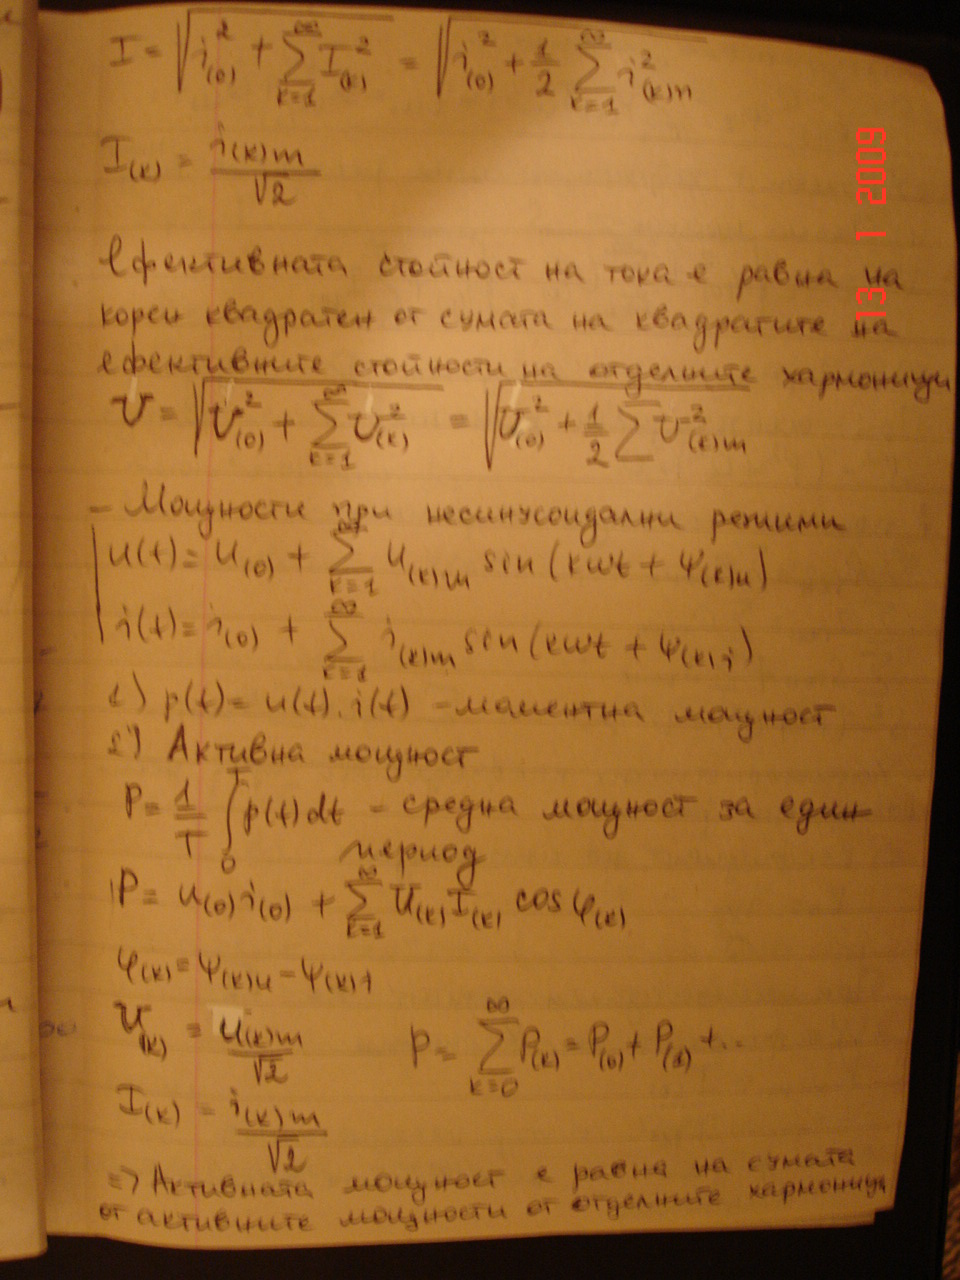 I = √(i²(0) + ∑(k=1, ∞) I²(k)) = √(i²(0) + 1/2 ∑(k=1, ∞) i²(k)m)
I(k) = i(k)m / √2
Ефективната стойност на тока е равна на
корен квадратен от сумата на квадратите на
ефективните стойности на отделните хармоници
U = √(U²(0) + ∑(k=1, ∞) U²(k)) = √(U²(0) + 1/2 ∑ U²(k)m)
- Мощности при несинусоидални режими
u(t) = u(0) + ∑(k=1, ∞) u(k)m sin(kωt + Ψ(k)u)
i(t) = i(0) + ∑(k=1, ∞) i(k)m sin(kωt + Ψ(k)i)
1) p(t) = u(t).i(t) - моментна мощност
2) Активна мощност
P = 1/T ∫(0, T) p(t)dt - средна мощност за един
период
P = u(0)i(0) + ∑(k=1, ∞) U(k)I(k) cosφ(k)
φ(k) = Ψ(k)u - Ψ(k)i
U(k) = u(k)m / √2
P = ∑(k=0, ∞) P(k) = P(0) + P(1) + ..
I(k) = i(k)m / √2
=> Активната мощност е равна на сумата
от активните мощности от отделните хармоници
13 1 2009